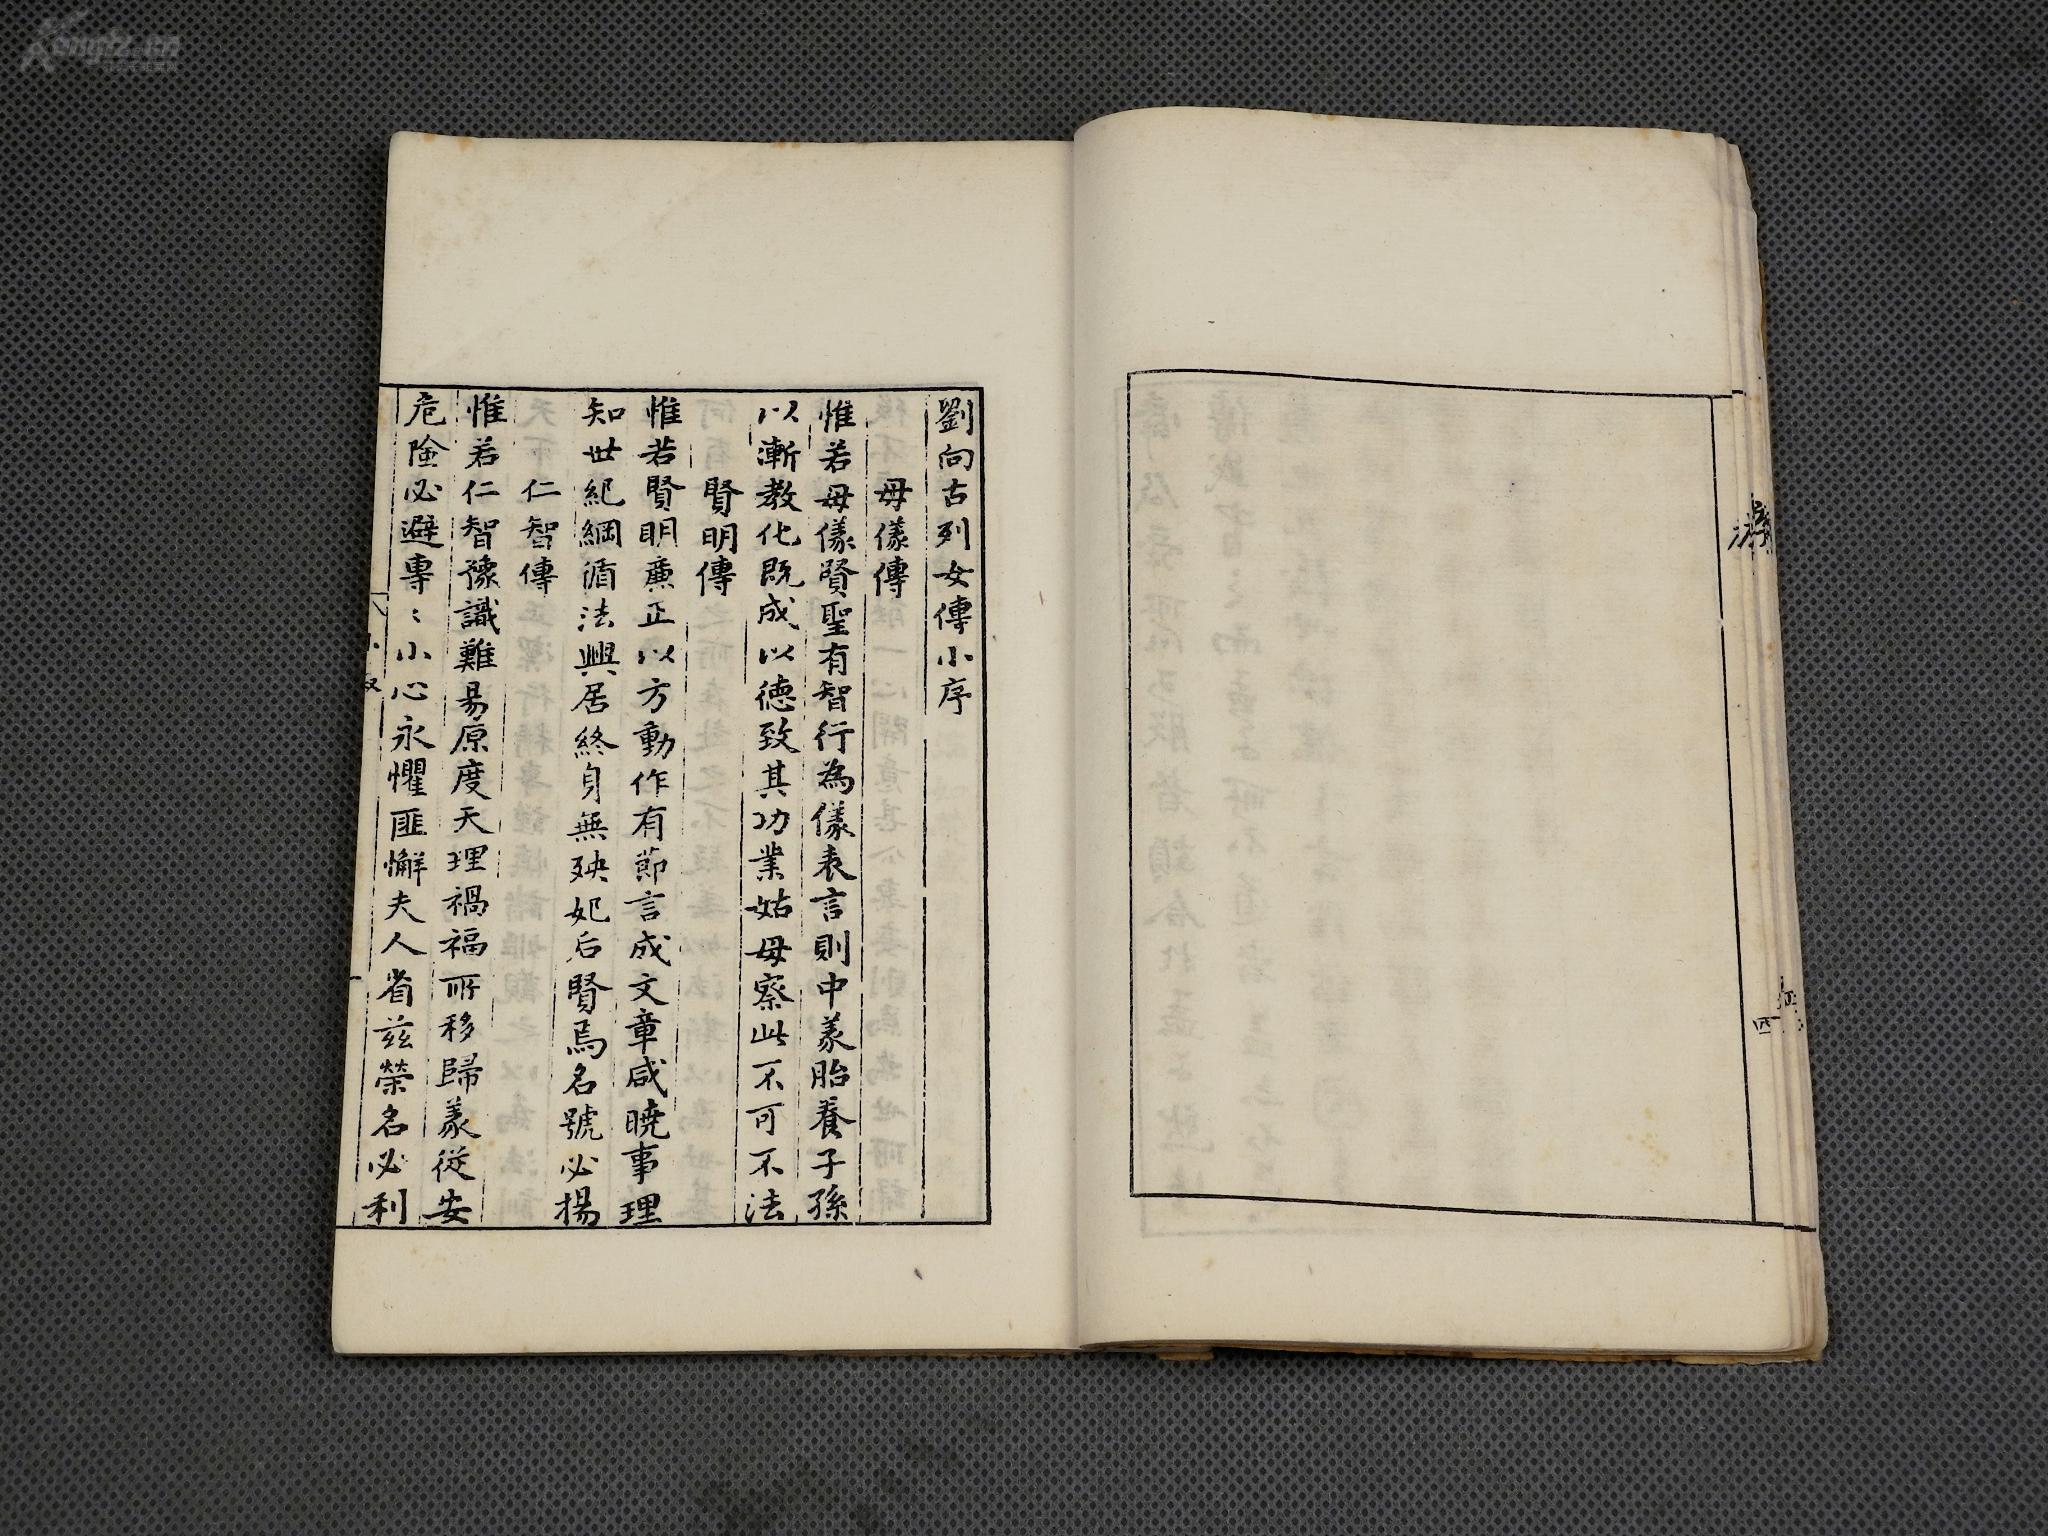 劉向古列女傳小序
母儀傳
惟若母儀賢聖有智行為儀表言則中義胎養子孫
以漸教化既成以德致其功業姑母察此不可不法
賢明傳
惟若賢明廉正以方動作有節言成文章咸曉事理
知世紀綱循法興居終身無殃妃后賢焉名號必揚
仁智傳
惟若仁智豫識難易原度天理禍福所移歸義從安
危險必避專〻小心永懼匪懈夫人省茲榮名必利
四
Kongfz.cn